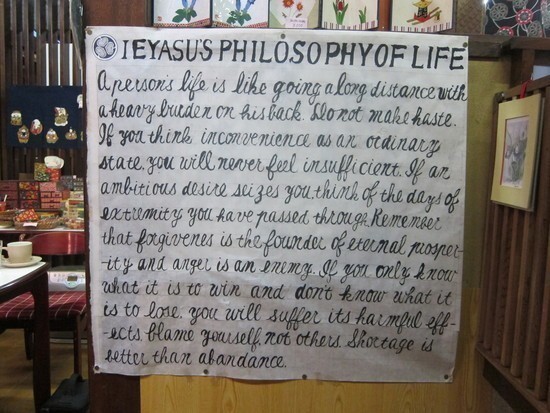 IEYASU'S PHILOSOPHY OF LIFE
A person's life is like going a long distance with
a heavy burden on his back. Do not make haste.
If you think inconvenience as an ordinary
state, you will never feel insufficient. If an
ambitious desire seizes you, think of the days of
extremity you have passed through. Remember
that forgivenes is the founder of eternal prosper-
-ity and anger is an enemy. If you only know
what it is to win and don't know what it
is to lose, you will suffer its harmful eff-
ects. blame yourself, not others. Shortage is
better than abandance.